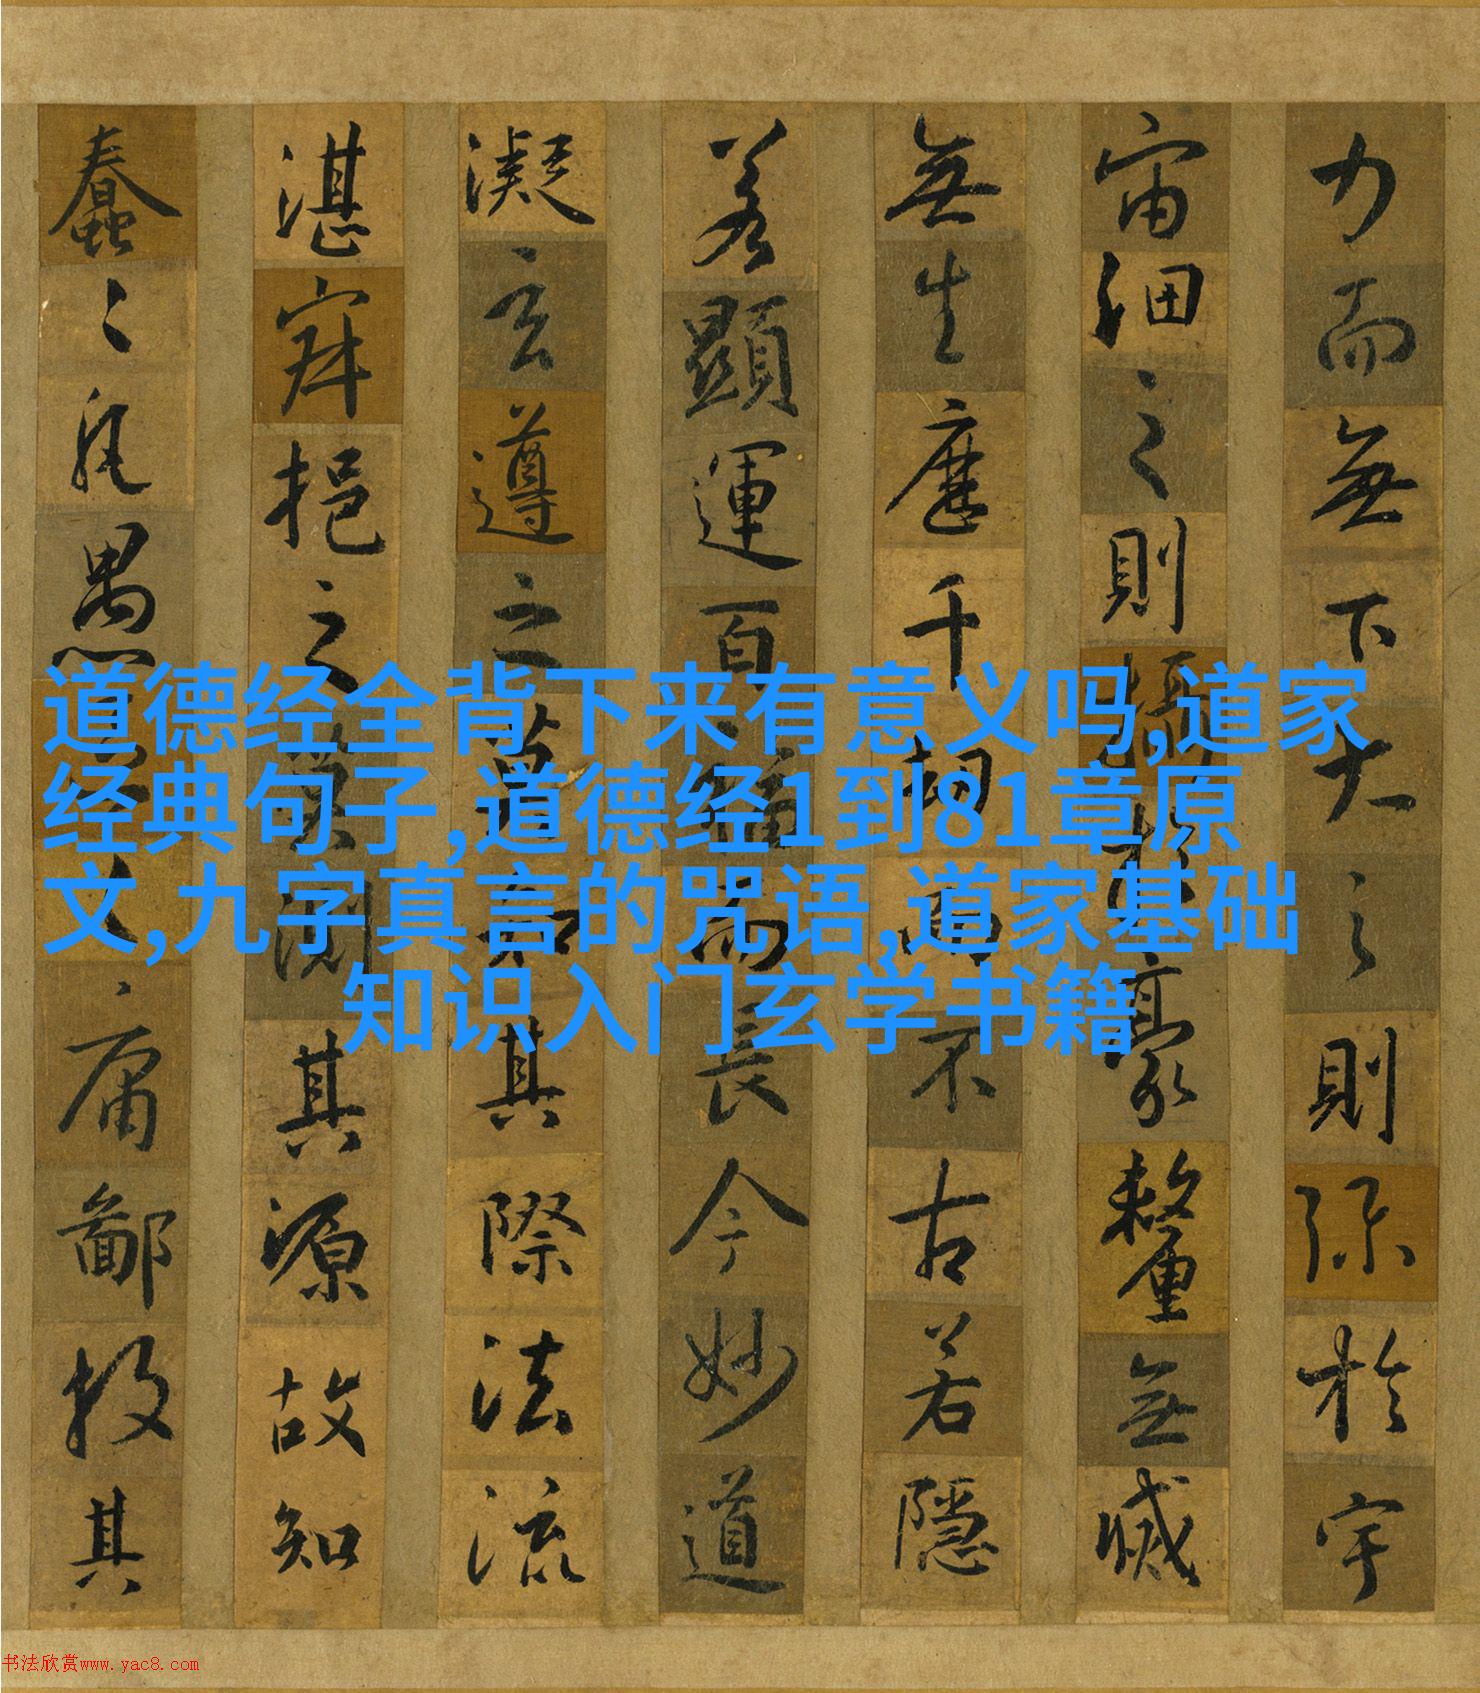 力而無下大之則弥於宇
宙細之則攝於毫釐無滅
無生歷千劫而不古若隱
若顯運百福而長今妙道
凝玄遵之莫知其際法流
湛寂挹之莫測其源故知
蠢〻凡愚區〻庸鄙投其
道德经全背下来有意义吗,道家
经典句子,道德经1到81章原
文,九字真言的咒语,道家基础
知识入门玄学书籍
书法欣赏www.yac8.com